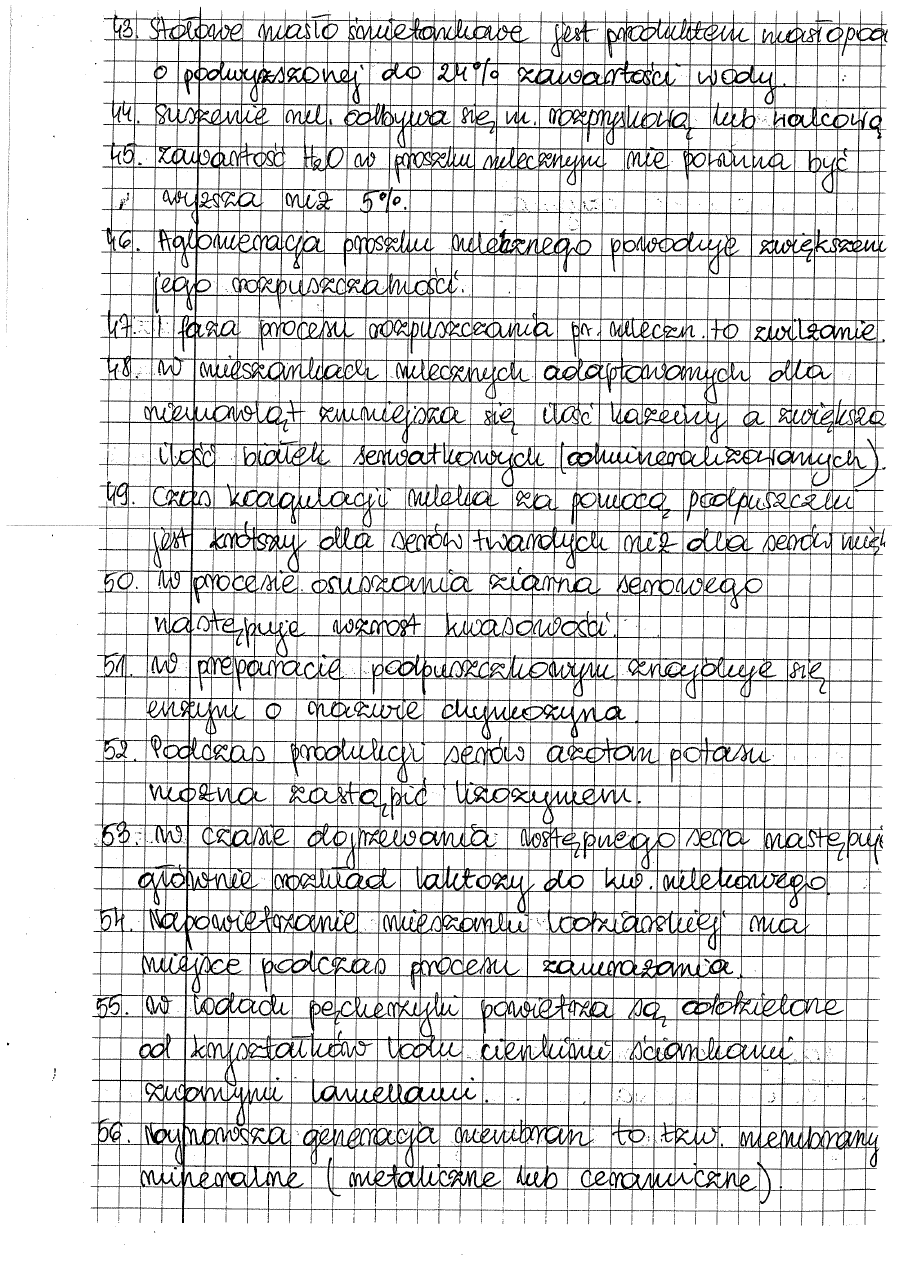 43. Stołowe masło śmietankowe jest produktem masłopod
o podwyższonej do 24% zawartości wody.
44. Suszenie ml. odbywa się m. rozpryskową lub walcową
45. Zawartość H₂O w proszku mlecznym nie powinna być
wyższa niż 5%.
46. Aglomeracja proszku mlecznego powoduje zwiększeni
jego rozpuszczalności.
47. I faza procesu rozpuszczania pr. mleczn. to zwilżanie.
48. W mieszankach mlecznych adaptowanych dla
niemowląt zmniejsza się ilość kazeiny a zwiększa
ilość białek serwatkowych (odmineralizowanych).
49. Czas koagulacji mleka za pomocą podpuszczki
jest krótszy dla serów twardych niż dla serów mięk
50. W procesie osuszania ziarna serowego
następuje wzrost kwasowości.
51. W preparacie podpuszczkowym znajduje się
enzym o nazwie chymozyna.
52. Podczas produkcji serów azotan potasu
można zastąpić lizozymem.
53. W czasie dojrzewania wstępnego sera następuje
głównie rozkład laktozy do kw. mlekowego.
54. Napowietrzanie mieszanki lodziarskiej ma
miejsce podczas procesu zamrażania.
55. W lodach pęcherzyki powietrza są oddzielone
od kryształków lodu cienkimi ściankami
zwanymi lamellami.
56. Najnowsza generacja membran to tzw. membrany
mineralne (metaliczne lub ceramiczne).